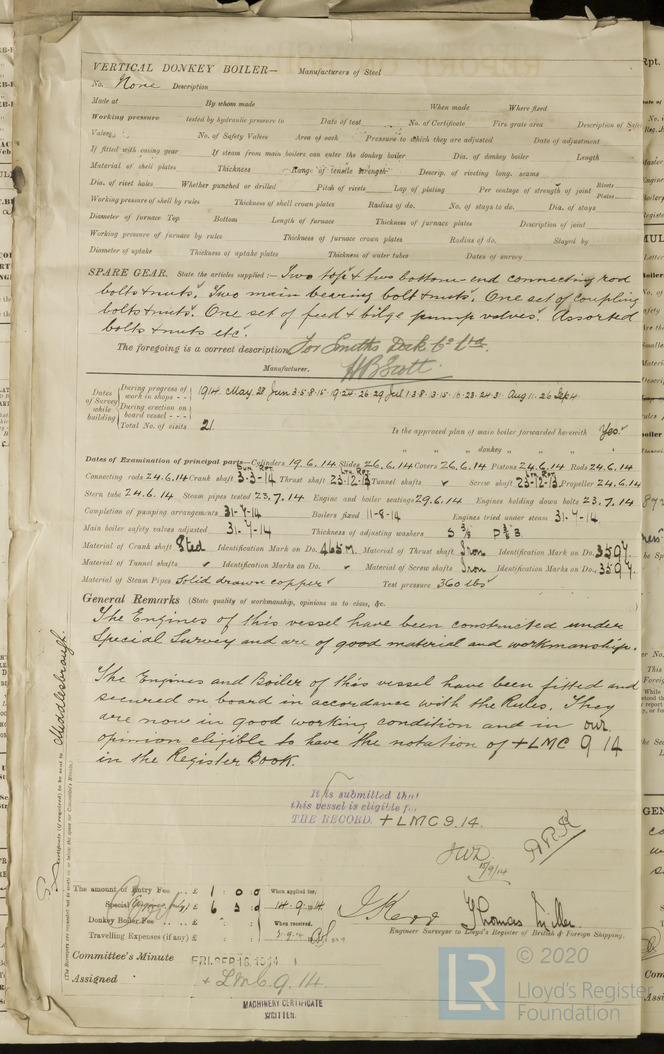 VERTICAL DONKEY BOILER— Manufacturers of Steel
No. None Description
Made at By whom made When made Where fixed
Working pressure tested by hydraulic pressure to Date of test No. of Certificate Fire grate area Description of Safety
Valves No. of Safety Valves Area of each Pressure to which they are adjusted Date of adjustment
If fitted with easing gear If steam from main boilers can enter the donkey boiler Dia. of donkey boiler Length
Material of shell plates Thickness Range of tensile strength Descrip. of riveting long. seams
Dia. of rivet holes Whether punched or drilled Pitch of rivets Lap of plating Per centage of strength of joint Rivets Plates
Working pressure of shell by rules Thickness of shell crown plates Radius of do. No. of stays to do. Dia. of stays
Diameter of furnace Top Bottom Length of furnace Thickness of furnace plates Description of joint
Working pressure of furnace by rules Thickness of furnace crown plates Radius of do. Stayed by
Diameter of uptake Thickness of uptake plates Thickness of water tubes Dates of survey
SPARE GEAR. State the articles supplied:— Two top & two bottom end connecting rod
bolts & nuts. Two main bearing bolts & nuts. One set of coupling
bolts & nuts. One set of feed & bilge pump valves. Assorted
bolts & nuts etc.
The foregoing is a correct description For Smiths Dock Co Ltd.
Manufacturer. H B Scott
Dates of Survey while building
During progress of work in shops - - 1914 May 28 Jun 3.5.8.15.19.24.26.29 Jul 1.3.8.13.15.16.23.24.31 Aug 11.26 Sep 4
During erection on board vessel - - -
Total No. of visits 21
Is the approved plan of main boiler forwarded herewith Yes
" " " donkey " "
Dates of Examination of principal parts—Cylinders 19.6.14 Slides 26.6.14 Covers 26.6.14 Pistons 24.6.14 Rods 24.6.14
Connecting rods 24.6.14 Crank shaft 3-3-14 Thrust shaft 23-12-13 Tunnel shafts Screw shaft 23-12-13 Propeller 24.6.14
Stern tube 24.6.14 Steam pipes tested 23.7.14 Engine and boiler seatings 29.6.14 Engines holding down bolts 23.7.14
Completion of pumping arrangements 31-7-14 Boilers fixed 11-8-14 Engines tried under steam 31-7-14
Main boiler safety valves adjusted 31-7-14 Thickness of adjusting washers S 3/8 P 3/8
Material of Crank shaft Steel Identification Mark on Do. 465M. Material of Thrust shaft Iron Identification Mark on Do. 3597.
Material of Tunnel shafts Identification Marks on Do. Material of Screw shafts Iron Identification Marks on Do. 3597.
Material of Steam Pipes Solid drawn copper Test pressure 360 lbs
General Remarks (State quality of workmanship, opinions as to class, &c.
The Engines of this vessel have been constructed under
Special Survey and are of good material and workmanship.
The Engines and Boiler of this vessel have been fitted and
secured on board in accordance with the Rules. They
are now in good working condition and in our
opinion eligible to have the notation of +LMC 9 14
in the Register Book.
It is submitted that
this vessel is eligible for
THE RECORD. +LMC 9.14.
JWD
15/9/14
ARR
Certificate (if required) to be sent to Middlesbrough.
(The Surveyors are requested not to write on or below the space for Committee's Minute.)
The amount of Entry Fee .. £ 1 : 0 : 0 When applied for,
Special £ 6 14.9.14
Donkey Boiler Fee .. £ : : When received,
Travelling Expenses (if any) £ : :
Thomas Miller
Engineer Surveyor to Lloyd's Register of British & Foreign Shipping.
Committee's Minute FRI. SEP 18 1914
Assigned + LMC 9.14
MACHINERY CERTIFICATE
WRITTEN.
© 2020
LR
Lloyd's Register
Foundation